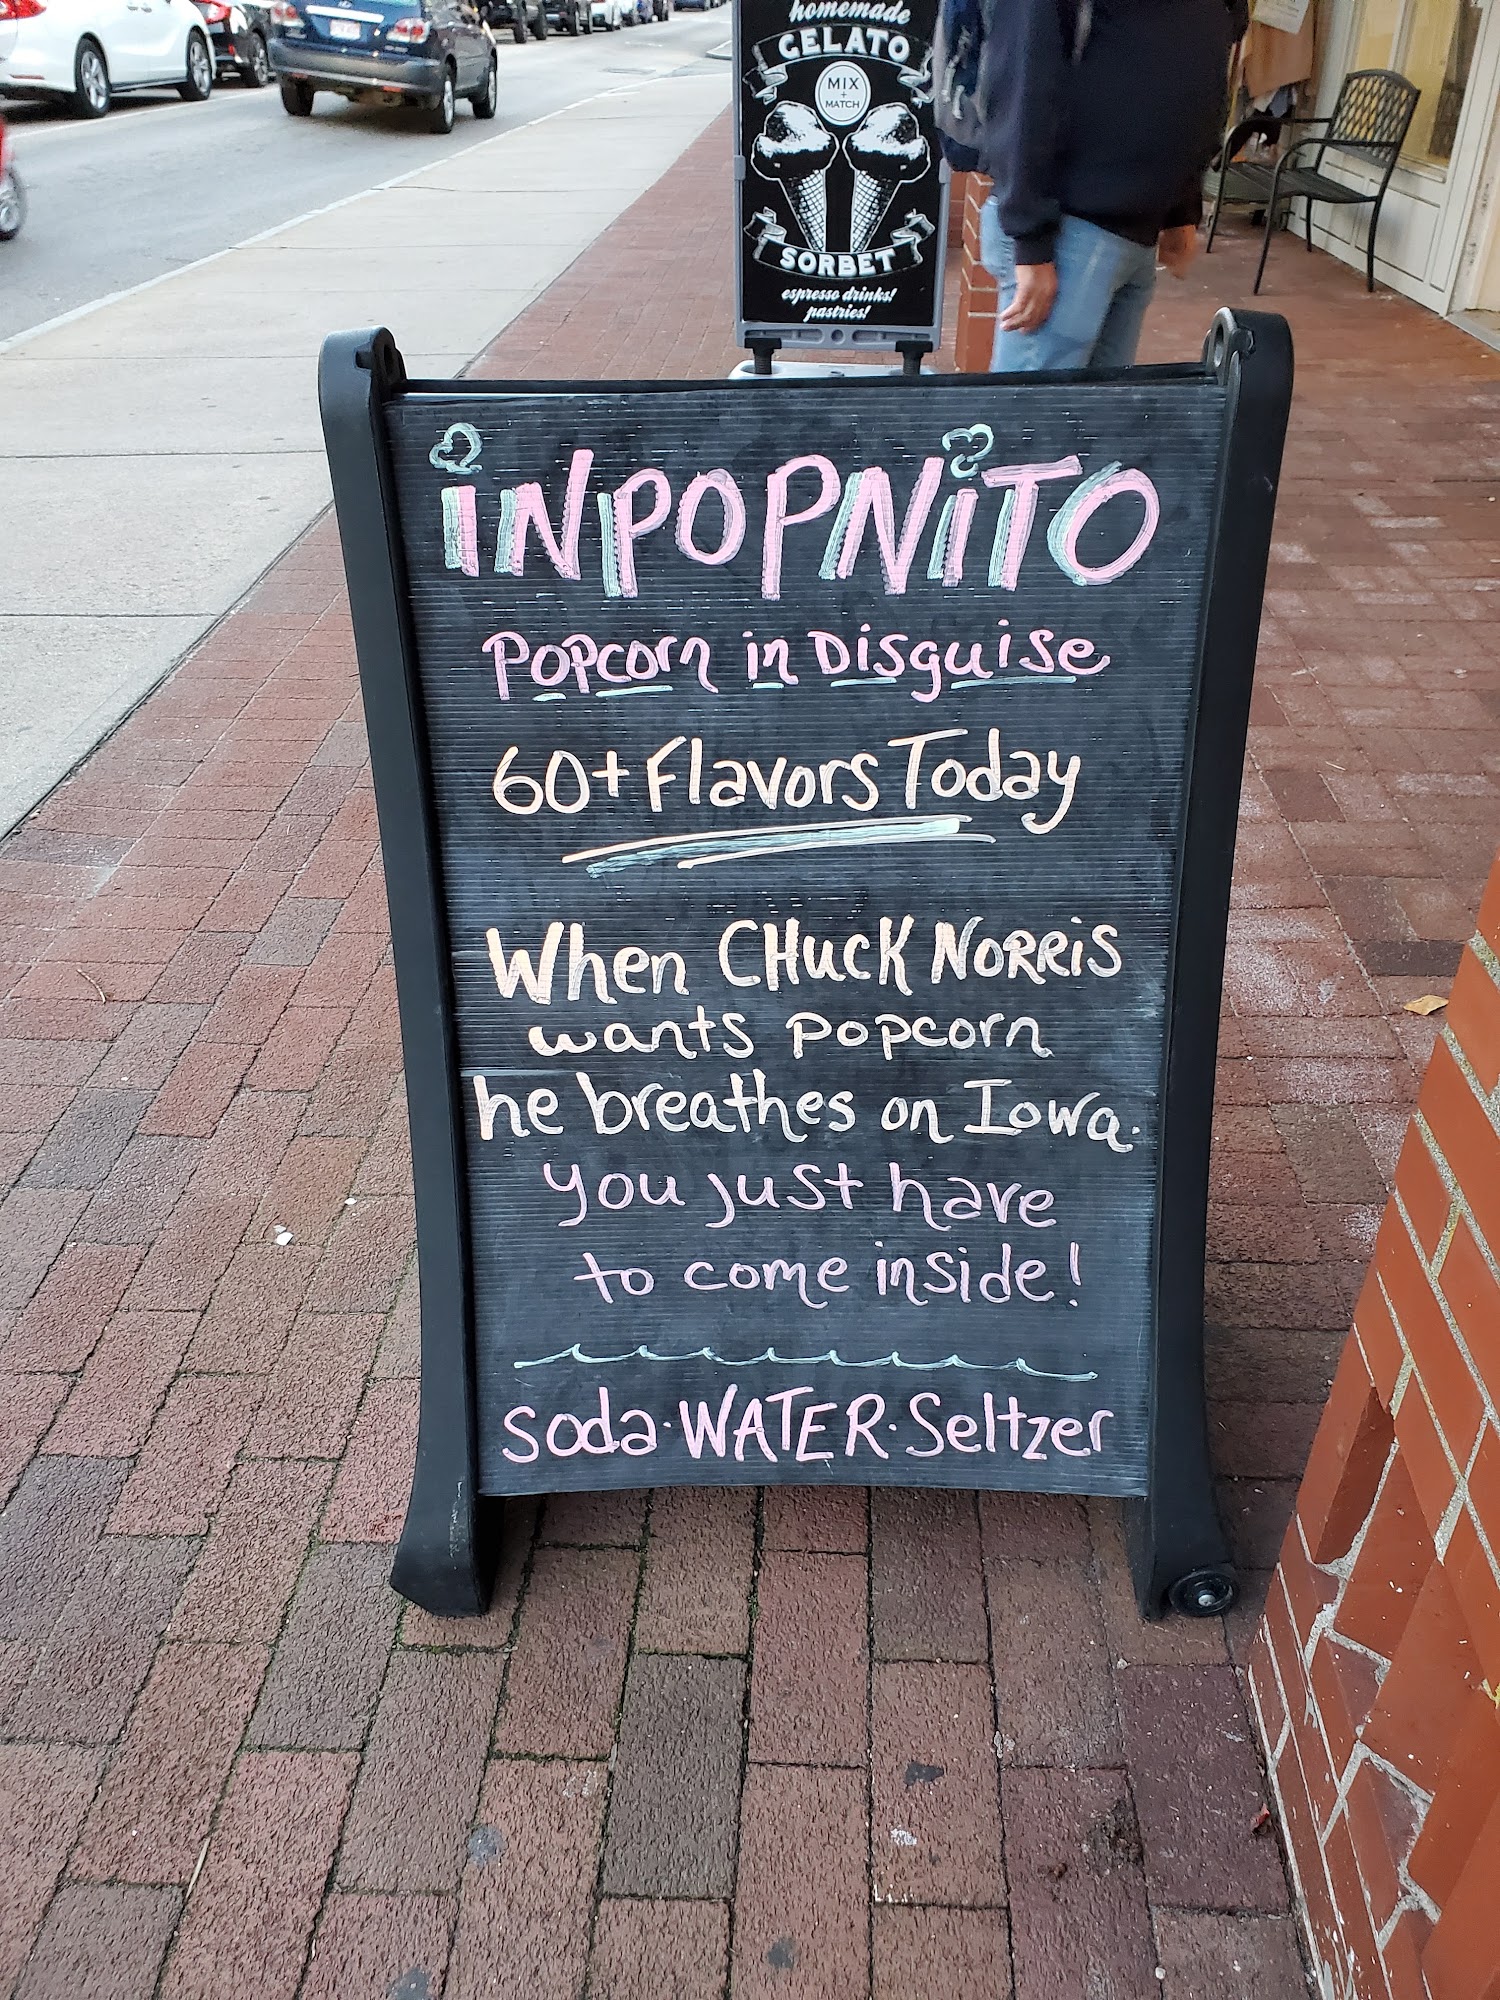 homemade
GELATO
MIX
+
MATCH
SORBET
espresso drinks!
pastries!
iNPOPNiTO
Popcorn in Disguise
60+ Flavors Today
When CHucK NoRRis
wants popcorn
he breathes on Iowa.
you just have
to come inside!
soda·WATER·Seltzer